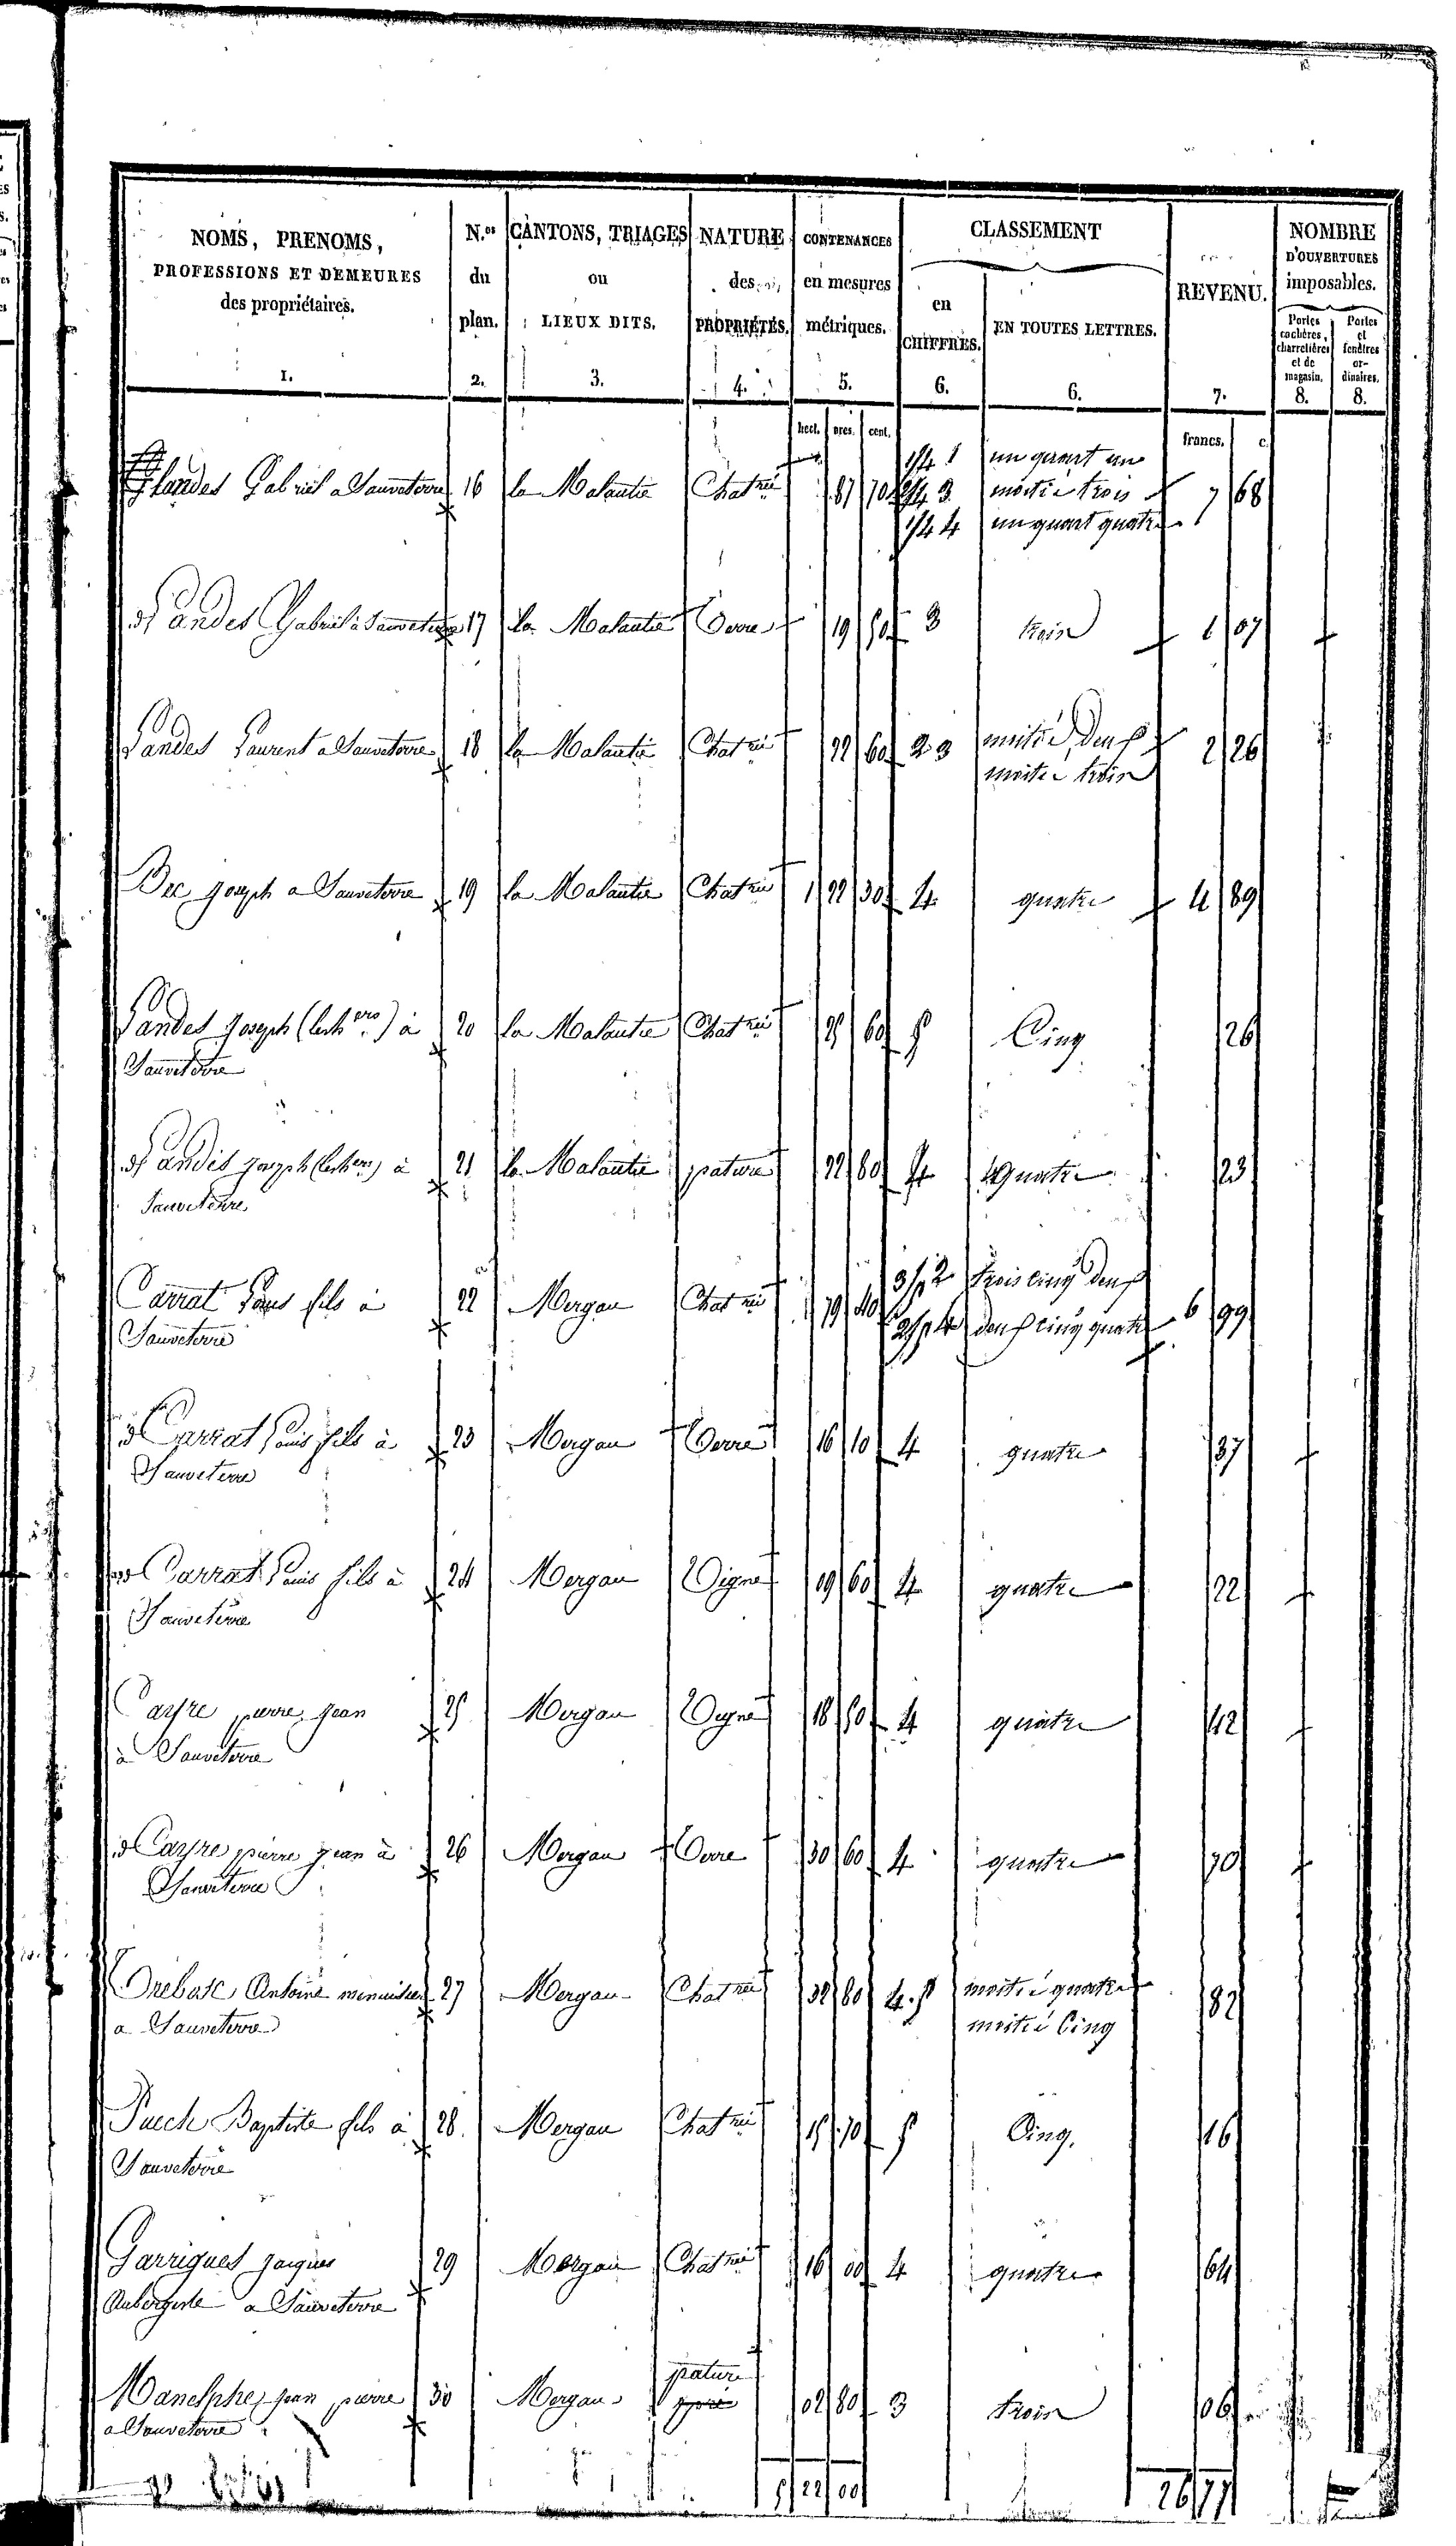 NOMS, PRENOMS,
PROFESSIONS ET DEMEURES
des propriétaires.
1.
N.os
du
plan.
2.
CANTONS, TRIAGES
ou
LIEUX DITS.
3.
NATURE
des
PROPRIÉTÉS.
4.
CONTENANCES
en mesures
métriques.
5.
CLASSEMENT
en
CHIFFRES.
6.
EN TOUTES LETTRES.
6.
REVENU.
7.
NOMBRE
D'OUVERTURES
imposables.
Portes
cochères,
charretières
et de
magasin.
8.
Portes
et
fenêtres
or-
dinaires.
8.
hect. ares. cent.
francs. c.
1/4 1 un quart un
Landes Gabriel a Sauveterre 16 la Malautie Chat.rée 87 70 2/4 3 moitié trois 7 68
1/4 4 un quart quatre
Landes Gabriel à Sauveterre 17 la Malautie Terre 19 50 3 trois 1 07
Landes Laurent a Sauveterre 18 la Malautie Chat.rée 22 60 2 3 moitié deux 2 26
moitié trois
Bec joseph a Sauveterre 19 la Malautie Chat.rée 1 22 30 4 quatre 4 89
Landes joseph (les h.ers) à 20 la Malautie Chat.rée 25 60 5 Cinq 26
Sauveterre
Landes joseph (les h.ers) à 21 la Malautie pature 22 80 4 Quatre 23
Sauveterre
3/5 2 trois cinq deux
Carrat Louis fils à 22 Mergau Chat.rée 79 40 6 99
Sauveterre 2/5 4 deux cinq quatre
Carrat Louis fils à 23 Mergau Terre 16 10 4 quatre 37
Sauveterre
Carrat Louis fils à 24 Mergau Vigne 09 60 4 quatre 22
Sauveterre
Cayre pierre jean 25 Mergau Vigne 18 50 4 quatre 42
à Sauveterre
Cayre pierre jean à 26 Mergau Terre 30 60 4 quatre 70
Sauveterre
Trebosc Antoine menuisier 27 Mergau Chat.rée 32 80 4.5 moitié quatre 82
a Sauveterre moitié Cinq
Puech Baptiste fils à 28 Mergau Chat.rée 15 70 5 Cinq. 16
Sauveterre
Garrigues jacques 29 Mergau Chat.rée 16 00 4 quatre 64
Aubergiste a Sauveterre
pature
jean pierre 30 Mergau 02 80 3 trois 06
a Sauveterre
5 22 00 26 77